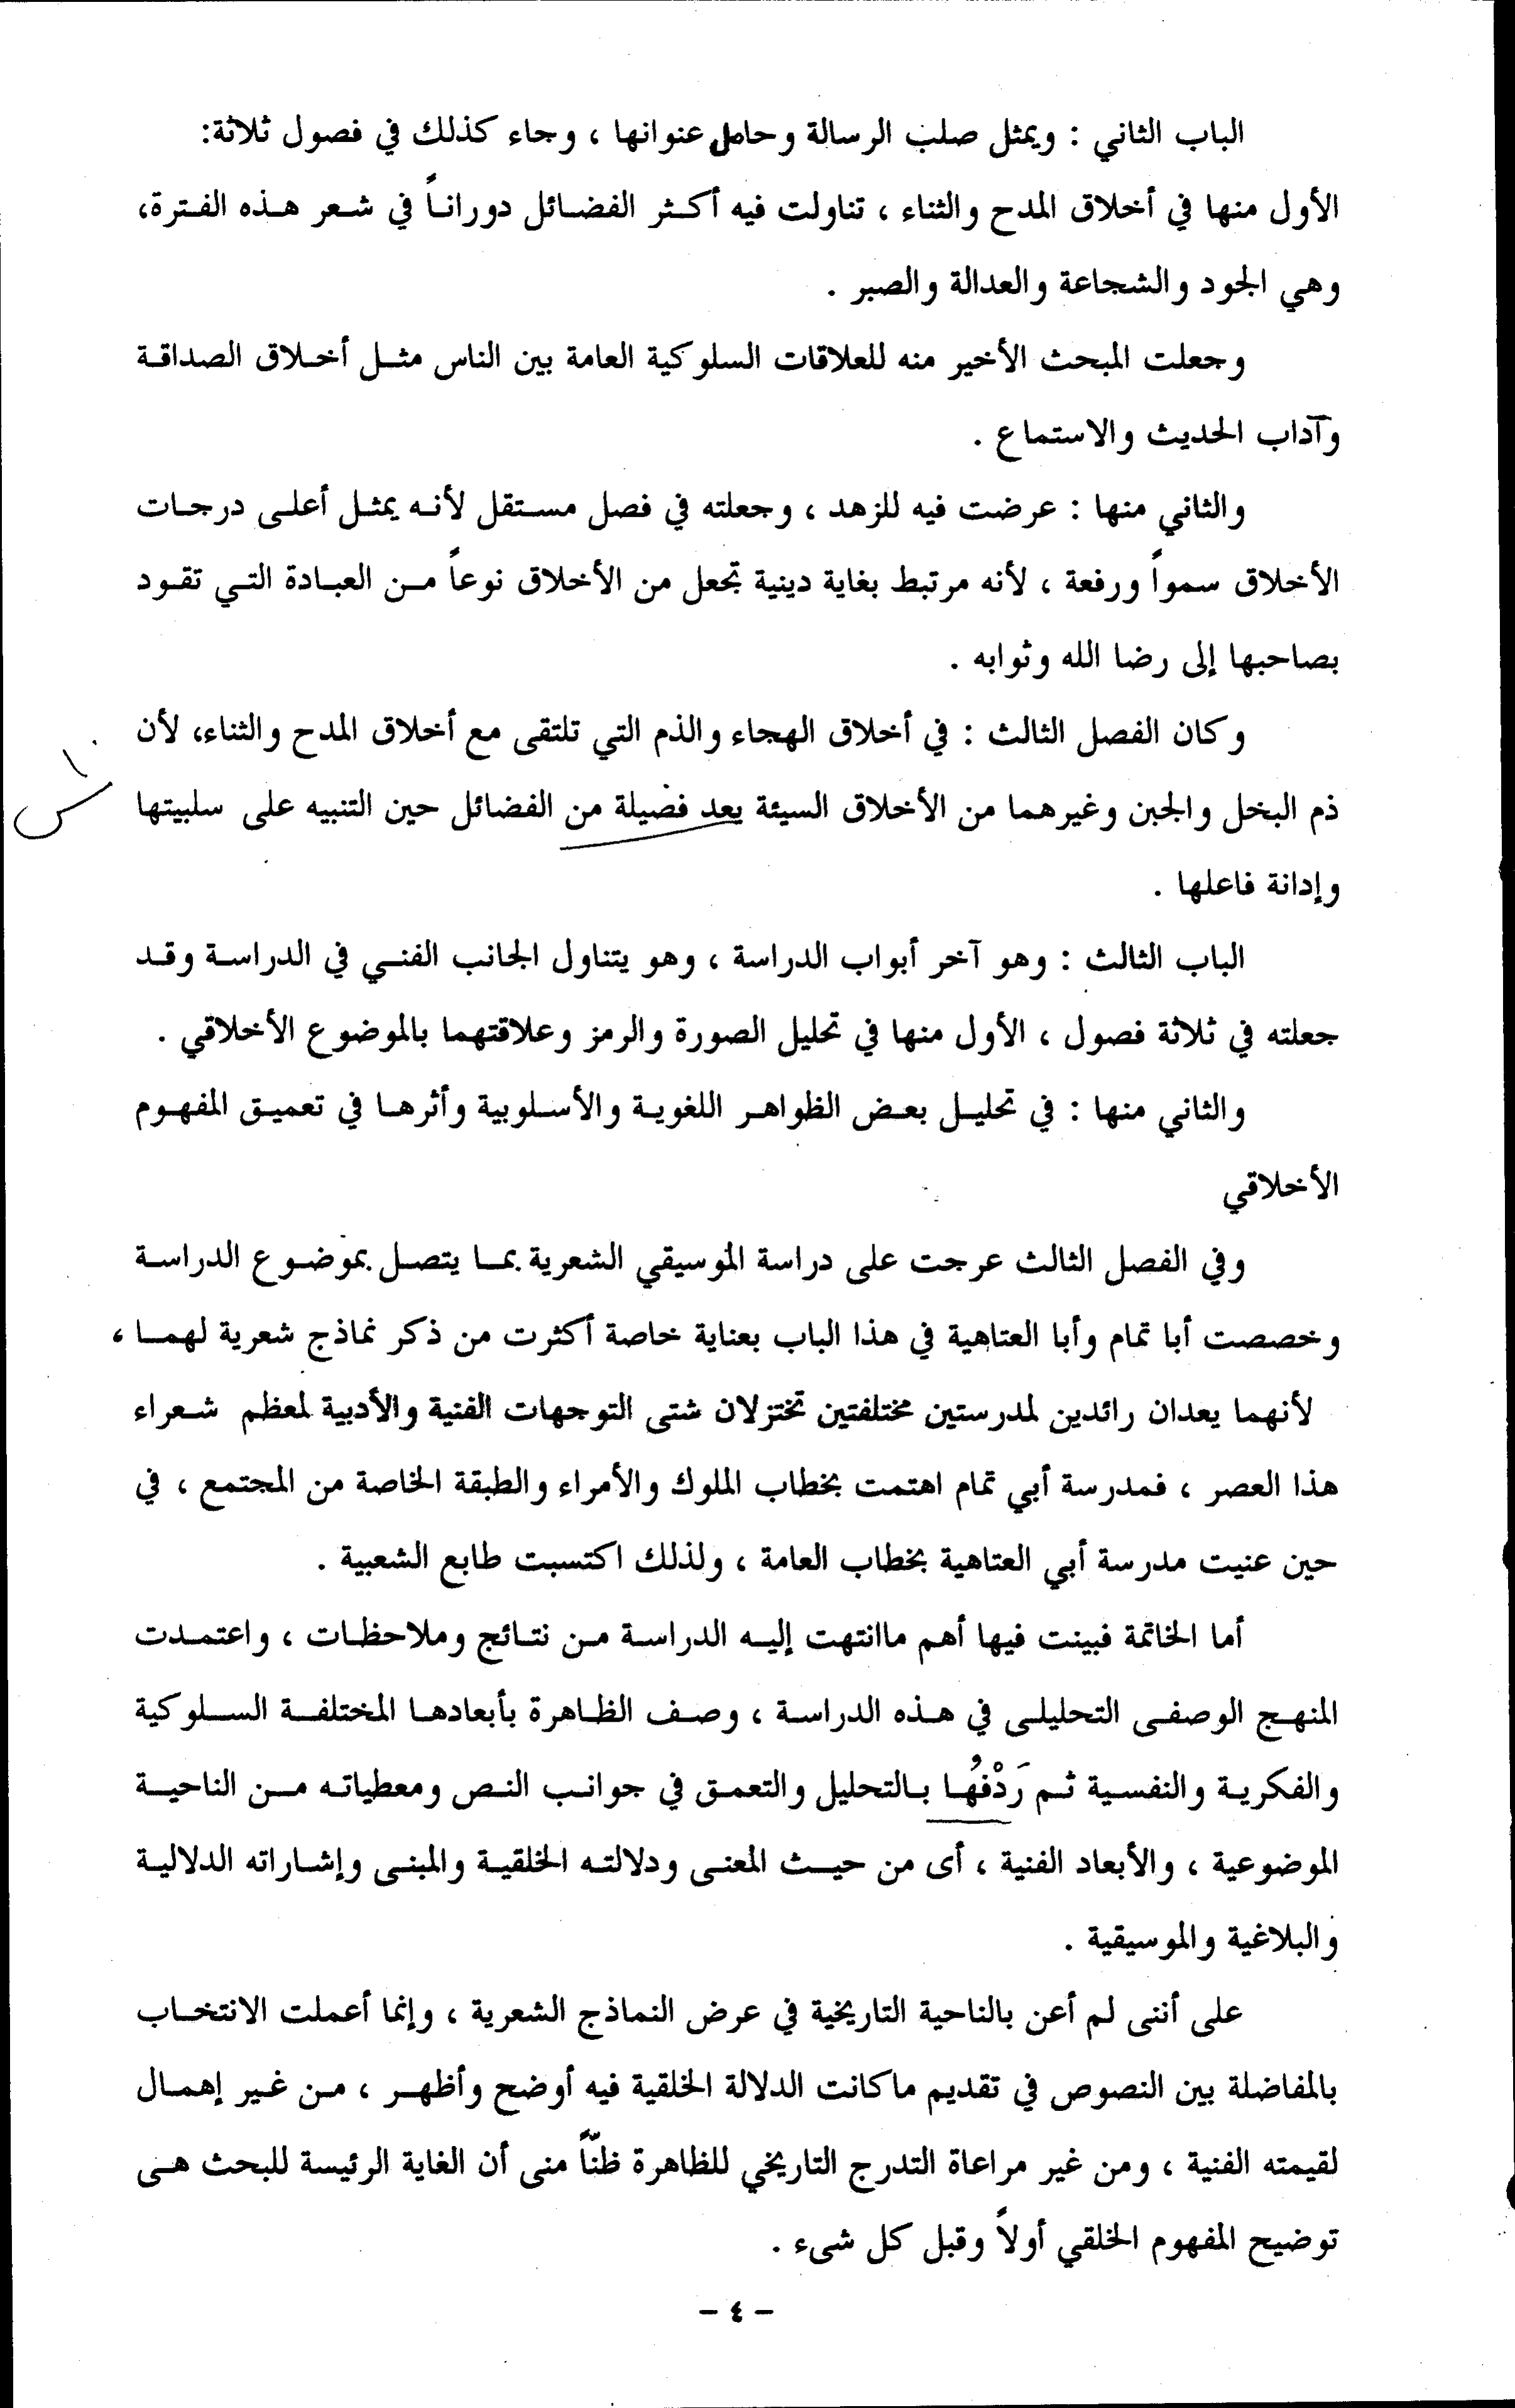 الباب الثاني : ويمثل صلب الرسالة وحامل عنوانها ، وجاء كذلك في فصول ثلاثة:
الأول منها في أخلاق المدح والثناء ، تناولت فيه أكثر الفضائل دوراناً في شعر هذه الفترة،
وهي الجود والشجاعة والعدالة والصبر .
وجعلت المبحث الأخير منه للعلاقات السلوكية العامة بين الناس مثل أخلاق الصداقة
وآداب الحديث والاستماع .
والثاني منها : عرضت فيه للزهد ، وجعلته في فصل مستقل لأنه يمثل أعلى درجات
الأخلاق سمواً ورفعة ، لأنه مرتبط بغاية دينية تجعل من الأخلاق نوعاً من العبادة التي تقود
بصاحبها إلى رضا الله وثوابه .
وكان الفصل الثالث : في أخلاق الهجاء والذم التي تلتقى مع أخلاق المدح والثناء، لأن
ذم البخل والجبن وغيرهما من الأخلاق السيئة يعد فضيلة من الفضائل حين التنبيه على سلبيتها
وإدانة فاعلها .
الباب الثالث : وهو آخر أبواب الدراسة ، وهو يتناول الجانب الفني في الدراسة وقد
جعلته في ثلاثة فصول ، الأول منها في تحليل الصورة والرمز وعلاقتهما بالموضوع الأخلاقي .
والثاني منها : في تحليل بعض الظواهر اللغوية والأسلوبية وأثرها في تعميق المفهوم
الأخلاقي
وفي الفصل الثالث عرجت على دراسة الموسيقي الشعرية بما يتصل بموضوع الدراسة
وخصصت أبا تمام وأبا العتاهية في هذا الباب بعناية خاصة أكثرت من ذكر نماذج شعرية لهما ،
لأنهما يعدان رائدين لمدرستين مختلفتين تختزلان شتى التوجهات الفنية والأدبية لمعظم شعراء
هذا العصر ، فمدرسة أبي تمام اهتمت بخطاب الملوك والأمراء والطبقة الخاصة من المجتمع ، في
حين عنيت مدرسة أبي العتاهية بخطاب العامة ، ولذلك اكتسبت طابع الشعبية .
أما الخاتمة فبينت فيها أهم ماانتهت إليه الدراسة من نتائج وملاحظات ، واعتمدت
المنهج الوصفى التحليلى في هذه الدراسة ، وصف الظاهرة بأبعادها المختلفة السلوكية
والفكرية والنفسية ثم رَدْفُها بالتحليل والتعمق في جوانب النص ومعطياته من الناحية
الموضوعية ، والأبعاد الفنية ، أى من حيث المعنى ودلالته الخلقية والمبنى وإشاراته الدلالية
والبلاغية والموسيقية .
على أننى لم أعن بالناحية التاريخية في عرض النماذج الشعرية ، وإنما أعملت الانتخاب
بالمفاضلة بين النصوص في تقديم ماكانت الدلالة الخلقية فيه أوضح وأظهر ، من غير إهمال
لقيمته الفنية ، ومن غير مراعاة التدرج التاريخي للظاهرة ظنّاً منى أن الغاية الرئيسة للبحث هى
توضيح المفهوم الخلقي أولاً وقبل كل شىء .
- ٤ -